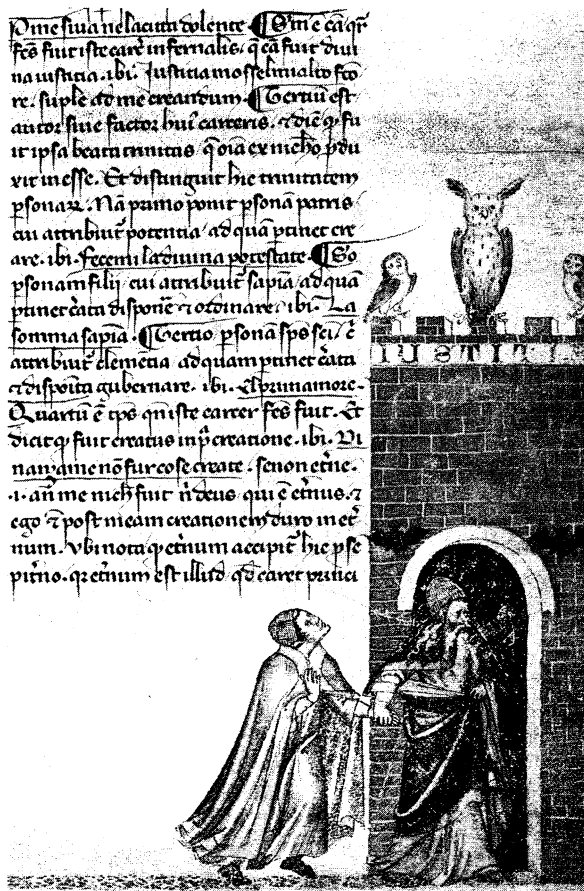 P me si va ne la citta dolente. Scđa ē cā qr̄
fcs̄ fuit iste carc̄ infernalis. q̄ cā fuit divi
na iustitia. ibi. Iustitia mosse l mio alto fcō
re. suple ad me creandum. Tertiū est
auctor sive factor huī carceris. ⁊ dic̄ ꝙ fu
it ipsa beata trinitas q̄ oīa ex nichō ꝓdu
xit in esse. Et distinguit hic trinitatem
ꝑsonaꝝ. Nā primo ponit ꝑsonā patris
cui attribuit̄ potentia. ad quā ꝑtinet cre
are. ibi. fecemi la divina potestate. So
ꝑsonam filij cui attribuit̄ sapīa. ad quā
ꝑtinet c̄ata disponē̄ ⁊ ordinare. ibi. La
somma sapīa. Tertio ꝑsonā sp̄s sc̄i. c̄
attribuit̄ clemētia ad quam ꝑtinet c̄ata
⁊ disposita gubernare. ibi. El primamore.
Quartū ē tp̄s qn̄ iste carcer fcs̄ fuit. Et
dicit ꝙ fuit creatus in p̄ creatione. ibi. Di
nançi a me nō fur cose create. se non etn̄e.
.i. an̄ me nich̄ fuit n̄ deus qui ē etn̄us. ⁊
ego ⁊ post meam creationem duro in et̄
num. Ubi nota ꝙ etn̄um accipit̄ hic ꝑ se
pit̄no. qr etn̄um est illud qd̄ caret princi
IUSTITI